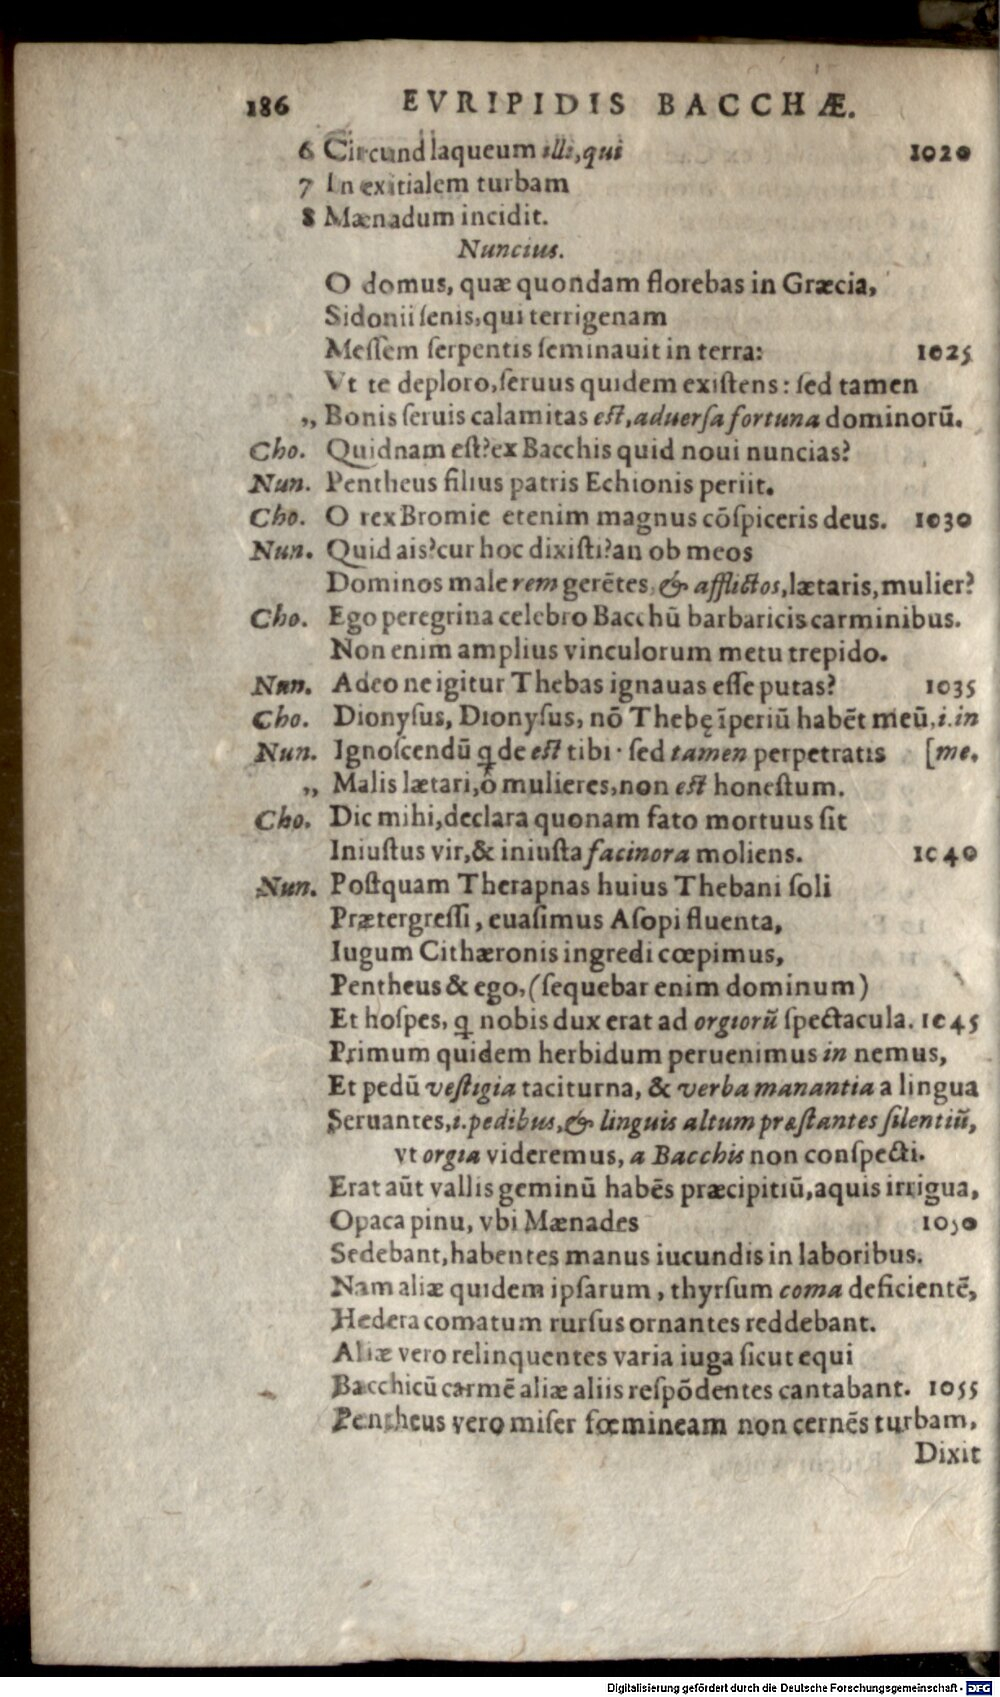 186 EVRIPIDIS BACCHÆ.
6 Circund laqueum illi, qui 1020
7 In exitialem turbam
8 Mænadum incidit.
Nuncius.
O domus, quæ quondam florebas in Græcia,
Sidonii ſenis, qui terrigenam
Meſſem ſerpentis ſeminauit in terra: 1025
Vt te deploro, ſeruus quidem exiſtens: ſed tamen
„ Bonis ſeruis calamitas eſt, aduerſa fortuna dominorū.
Cho. Quidnam eſt? ex Bacchis quid noui nuncias?
Nun. Pentheus filius patris Echionis periit.
Cho. O rex Bromie etenim magnus cōſpiceris deus. 1030
Nun. Quid ais? cur hoc dixiſti? an ob meos
Dominos male rem gerētes, & afflictos, lætaris, mulier?
Cho. Ego peregrina celebro Bacchū barbaricis carminibus.
Non enim amplius vinculorum metu trepido.
Nun. Adeo ne igitur Thebas ignauas eſſe putas? 1035
Cho. Dionyſus, Dionyſus, nō Thebę īperiū habēt meū, i. in
Nun. Ignoſcendū ꝗdē eſt tibi· ſed tamen perpetratis [me.
„ Malis lætari, ô mulieres, non eſt honeſtum.
Cho. Dic mihi, declara quonam fato mortuus ſit
Iniuſtus vir, & iniuſta facinora moliens. 1040
Nun. Poſtquam Therapnas huius Thebani ſoli
Prætergreſſi, euaſimus Aſopi fluenta,
Iugum Cithæronis ingredi cœpimus,
Pentheus & ego, (ſequebar enim dominum)
Et hoſpes, ꝗ nobis dux erat ad orgiorū ſpectacula. 1045
Primum quidem herbidum peruenimus in nemus,
Et pedū veſtigia taciturna, & verba manantia a lingua
Seruantes, i. pedibus, & linguis altum præſtantes ſilentiū,
vt orgia videremus, a Bacchis non conſpecti.
Erat aūt vallis geminū habēs præcipitiū, aquis irrigua,
Opaca pinu, vbi Mænades 1050
Sedebant, habentes manus iucundis in laboribus.
Nam aliæ quidem ipſarum, thyrſum coma deficientē,
Hedera comatum rurſus ornantes reddebant.
Aliæ vero relinquentes varia iuga ſicut equi
Bacchicū carmē aliæ aliis reſpōdentes cantabant. 1055
Pentheus vero miſer fœmineam non cernēs turbam,
Dixit
Digitalisierung gefördert durch die Deutsche Forschungsgemeinschaft - DFG